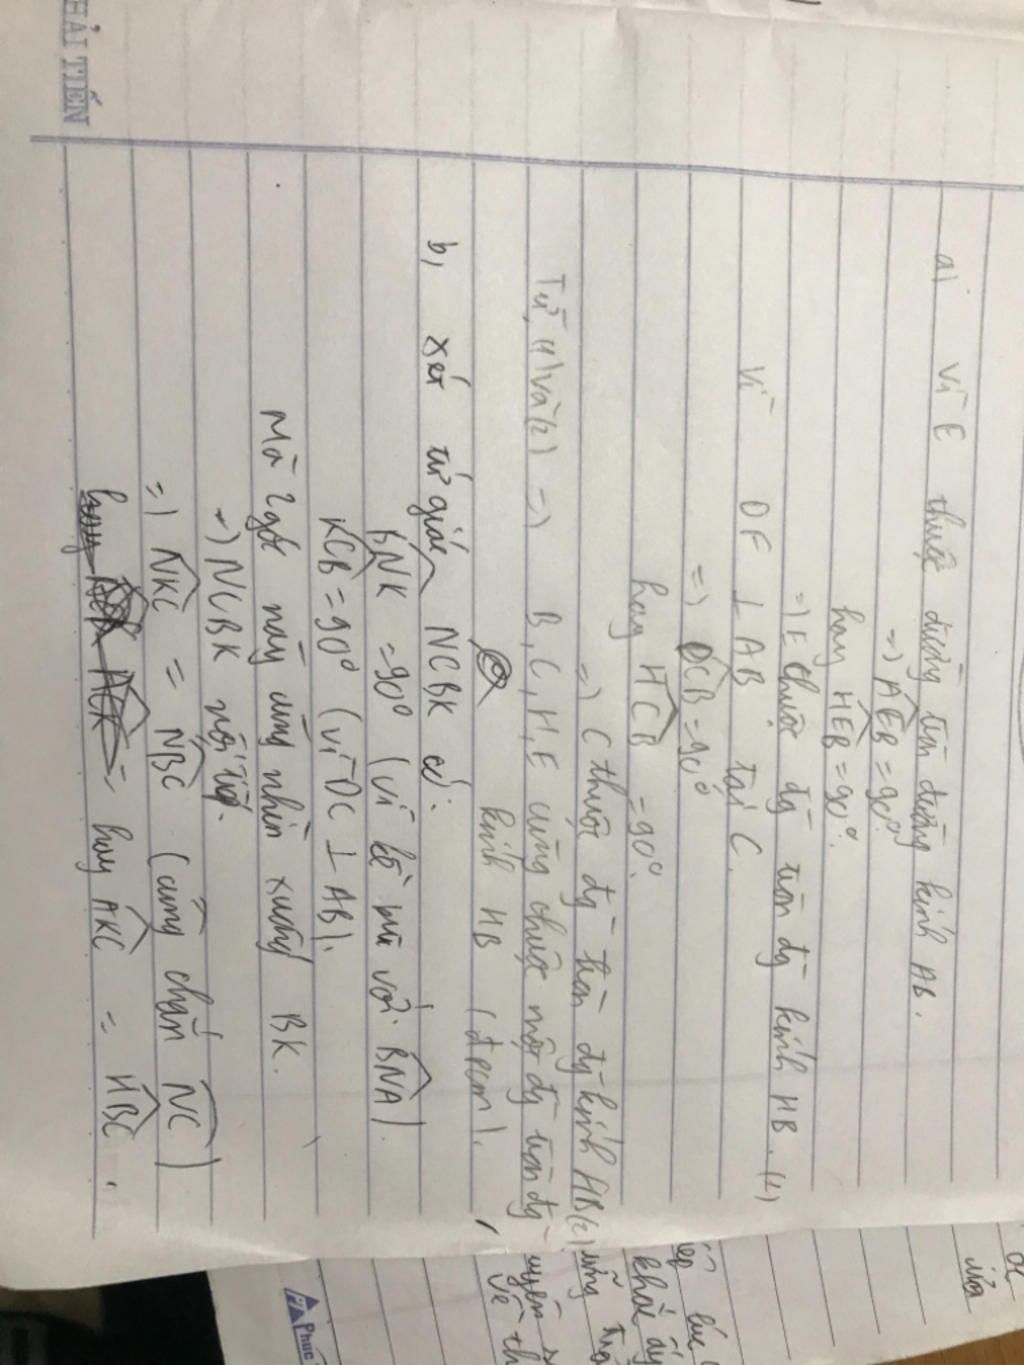 HẢI TIẾN
a) Vì E thuộc đường tròn đường kính AB.
=) AEB = 90°.
hay HEB = 90°.
=) E thuộc đg tròn đg kính HB. (1)
Vì DF ⊥ AB tại C.
=) DCB = 90°
hay HCB = 90°.
=) C thuộc đg tròn đg kính HB (2)
Từ (1) và (2) =) B, C, H, E cùng thuộc một đg tròn đg
kính HB (đpcm).
b, xét tứ giác NCBK có:
BNK = 90° (vì kề bù với BNA)
KCB = 90° (vì DC ⊥ AB).
Mà 2 góc này cùng nhìn xuống BK.
=) NCBK nội tiếp.
=) NKC = NBC (cùng chắn NC)
hay AKC = HBC.
Phúc